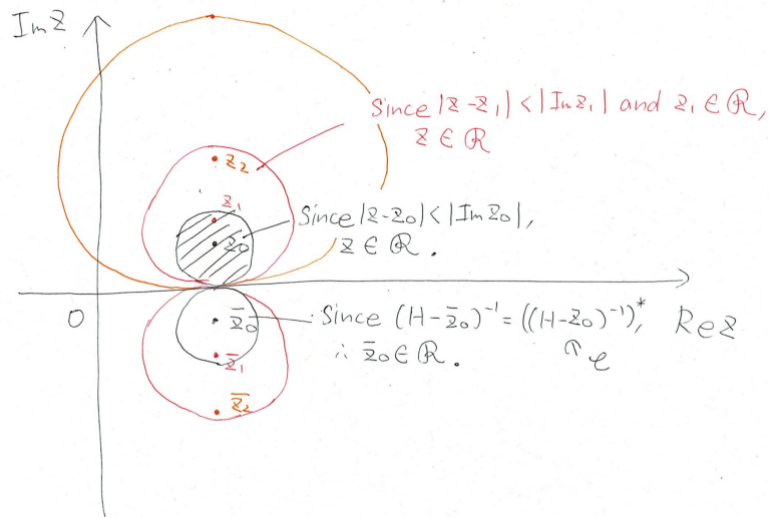 Im Z
Since |z-z₁|<|Im z₁| and z₁∈ℝ,
z∈ℝ
z₂
z₁
Since |z-z₀|<|Im z₀|,
z∈ℝ.
z₀
0
z̄₀
Since (H-z̄₀)⁻¹=((H-z₀)⁻¹)*,
Re z
∴ z̄₀∈ℝ.
z̄₁
z̄₂